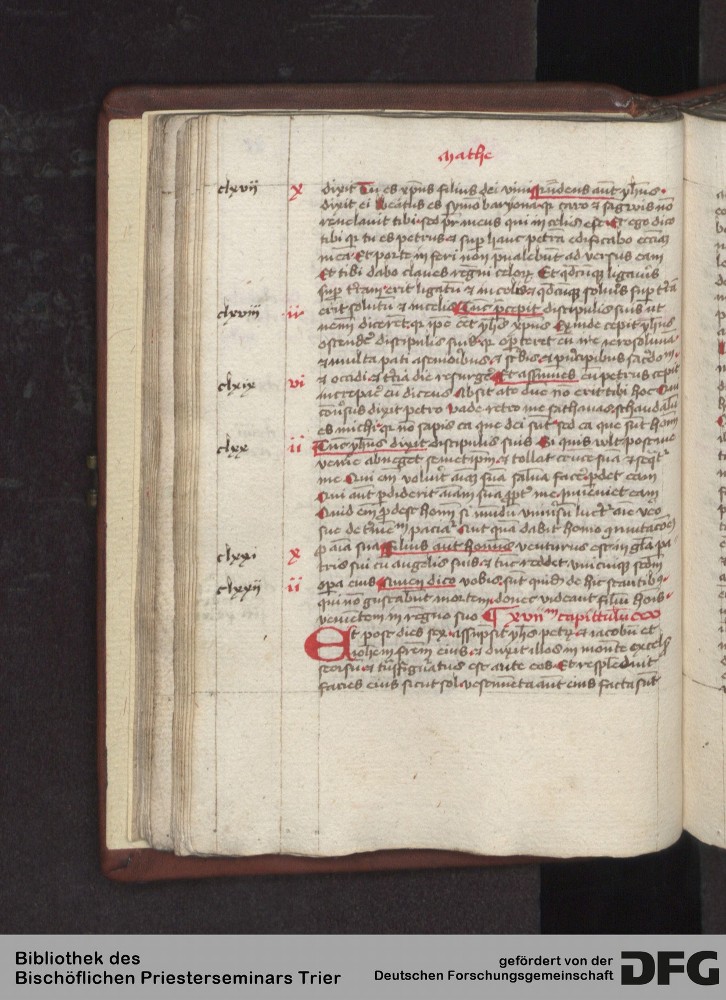 Mathe
clxvii x dixit Tu es xpus filius dei vivi Rndens aut yhus
dixit ei Beatus es symo baryona qr caro et sagwis no
revelavit tibi sed pr meus qui in celis est Et ego dico
tibi qr tu es petrus et sup hanc petra edificabo eccam
mea Et porte inferi non pvalebut adversus eam
Et tibi dabo claves regni celor Et qdcuqz ligaveris
sup tram erit ligatu et in celis et qdcuqz solvis sup tra
clxviii ii erit solutu et in celis Tuc pcepit discipulis suis ut
nemi diceret qr ipe eet yhus xpus Exinde cepit yhus
ostende discipulis suis qr oporteret eu ire ierosolima
et multa pati a senioribus et scbis et pncipibus sacdom
clxix vi et occidi et tcia die resurge Et assumes eu petrus cepit
increpae eu dicens Absit a te due no erit tibi hoc Qui
consus dixit petro vade retro me sathanas schandalu
es michi qr no sapis ea que dei sut sed ea que sut hoim
clxx ii Tuc yhus dixit discipulis suis Si quis vlt post me
venie abneget semetipm et tollat cruce sua et seqt
me Qui em voluit aiam sua salva face pdet eam
Qui aut pdiderit aiam sua ppt me inveniet eam
Quid em pdest homi si mudu univsu lucret aie vo
sue detrimem paciat Aut qua dabit homo comutacoe
clxxi x p aia sua Filius aut hominis venturus est in gla pa
tris sui cu angelis suis et tuc reddet unicuique scdm
clxxii ii opa eius Amen dico vobis sut quida de hic stantibz
qui no gustabut mortem donec videant filiu hois
venietem in regno suo xviim capittulum
Et post dies sex assupsit yhs petru et iacobu et
iohem frem eius et duxit illos in monte excels
seorsu et tnsfiguratus est ante eos Et resplenduit
facies eius sicut sol vestimeta aut eius facta sut
Bibliothek des
Bischöflichen Priesterseminars Trier
gefördert von der
Deutschen Forschungsgemeinschaft
DFG